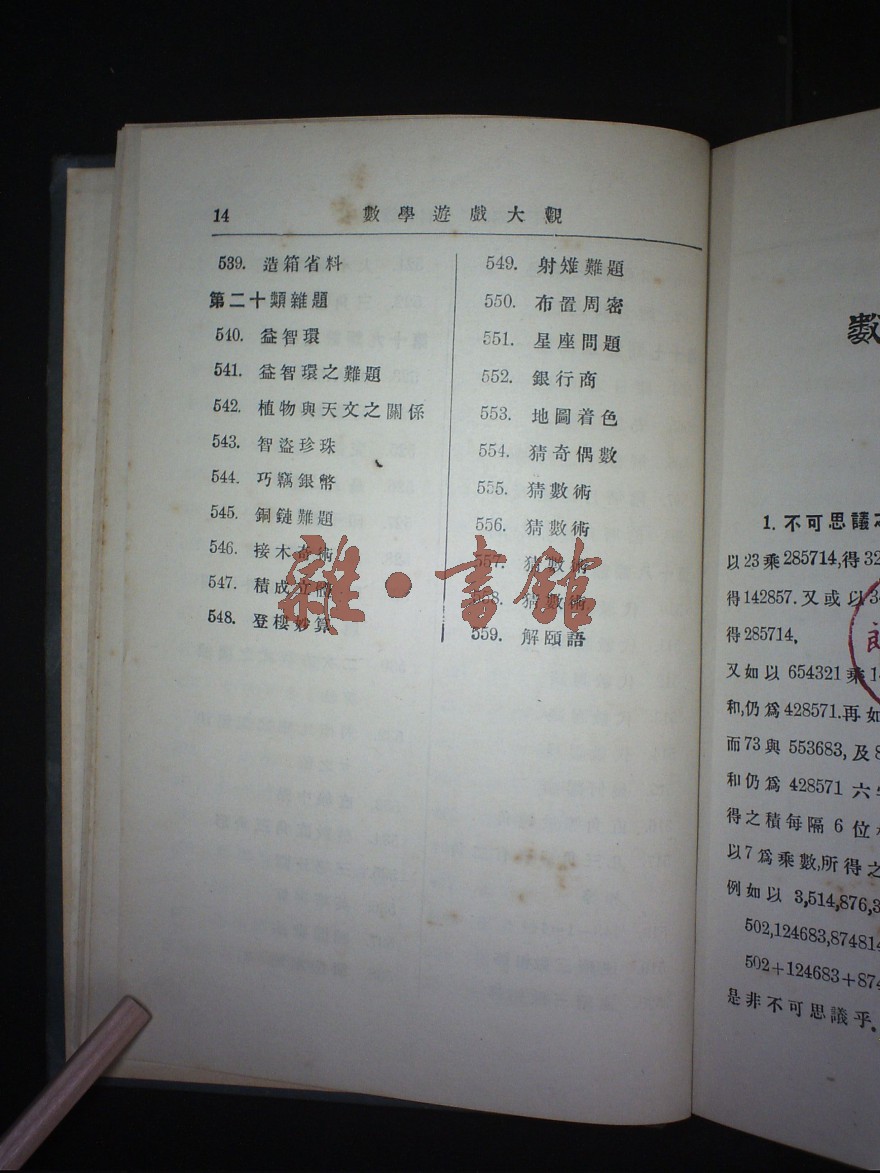 14 數學遊戲大觀
539. 造箱省料
第二十類雜題
540. 益智環
541. 益智環之難題
542. 植物與天文之關係
543. 智盜珍珠
544. 巧竊銀幣
545. 銅鏈難題
546. 接木奇術
547. 積成立體
548. 登樓妙算
549. 射雉難題
550. 布置周密
551. 星座問題
552. 銀行商
553. 地圖着色
554. 猜奇偶數
555. 猜數術
556. 猜數術
557. 猜數術
558. 猜數術
559. 解頤語
雜·書館
數
1. 不可思議
以23乘285714,得32
得142857.又或以3
得285714.
又如以 654321乘1
和,仍爲428571.再如
而73與 553683, 及8
和仍爲 428571 六
得之積每隔 6 位
以7爲乘數,所得之
例如以 3,514,876,3
502,124683,874814
502+124683+874
是非不可思議乎.